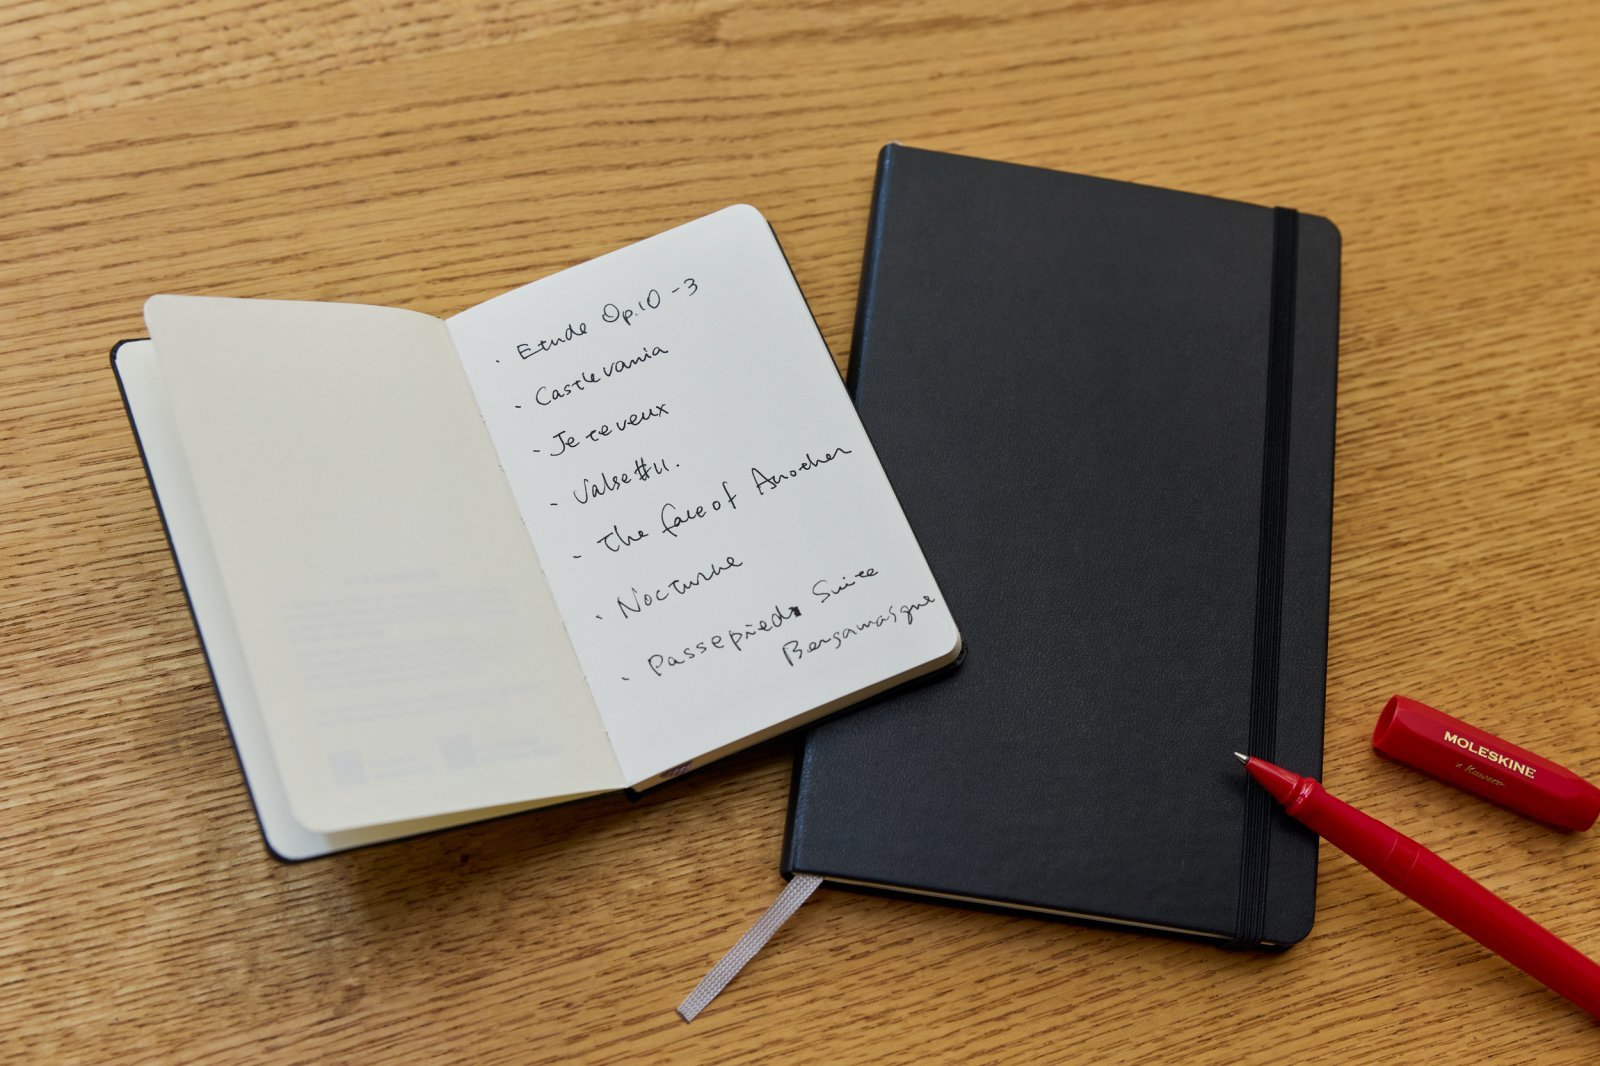 · Etude Op.10-3
· Castlevania
· Je te veux
· Valse #11.
· The face of Another
· Nocturne
· Passepied Suite
Bergamasque
MOLESKINE
x Kaweco